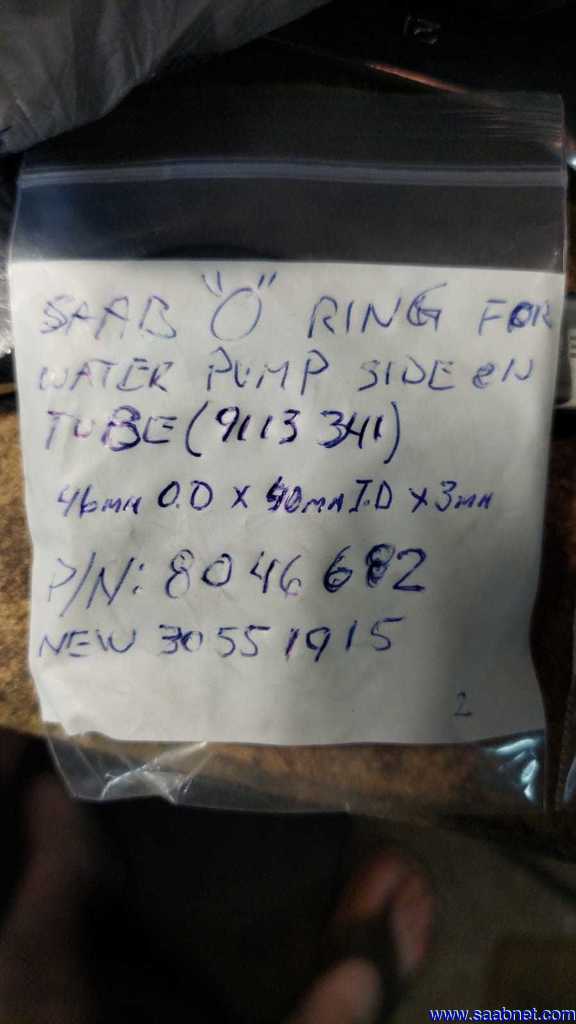 SAAB "O" RING FOR
WATER PUMP SIDE ON
TUBE (9113 341)
46mm O.D x 40mm I.D x 3mm
P/N: 8046 682
NEW 30551915
2
www.saabnet.com